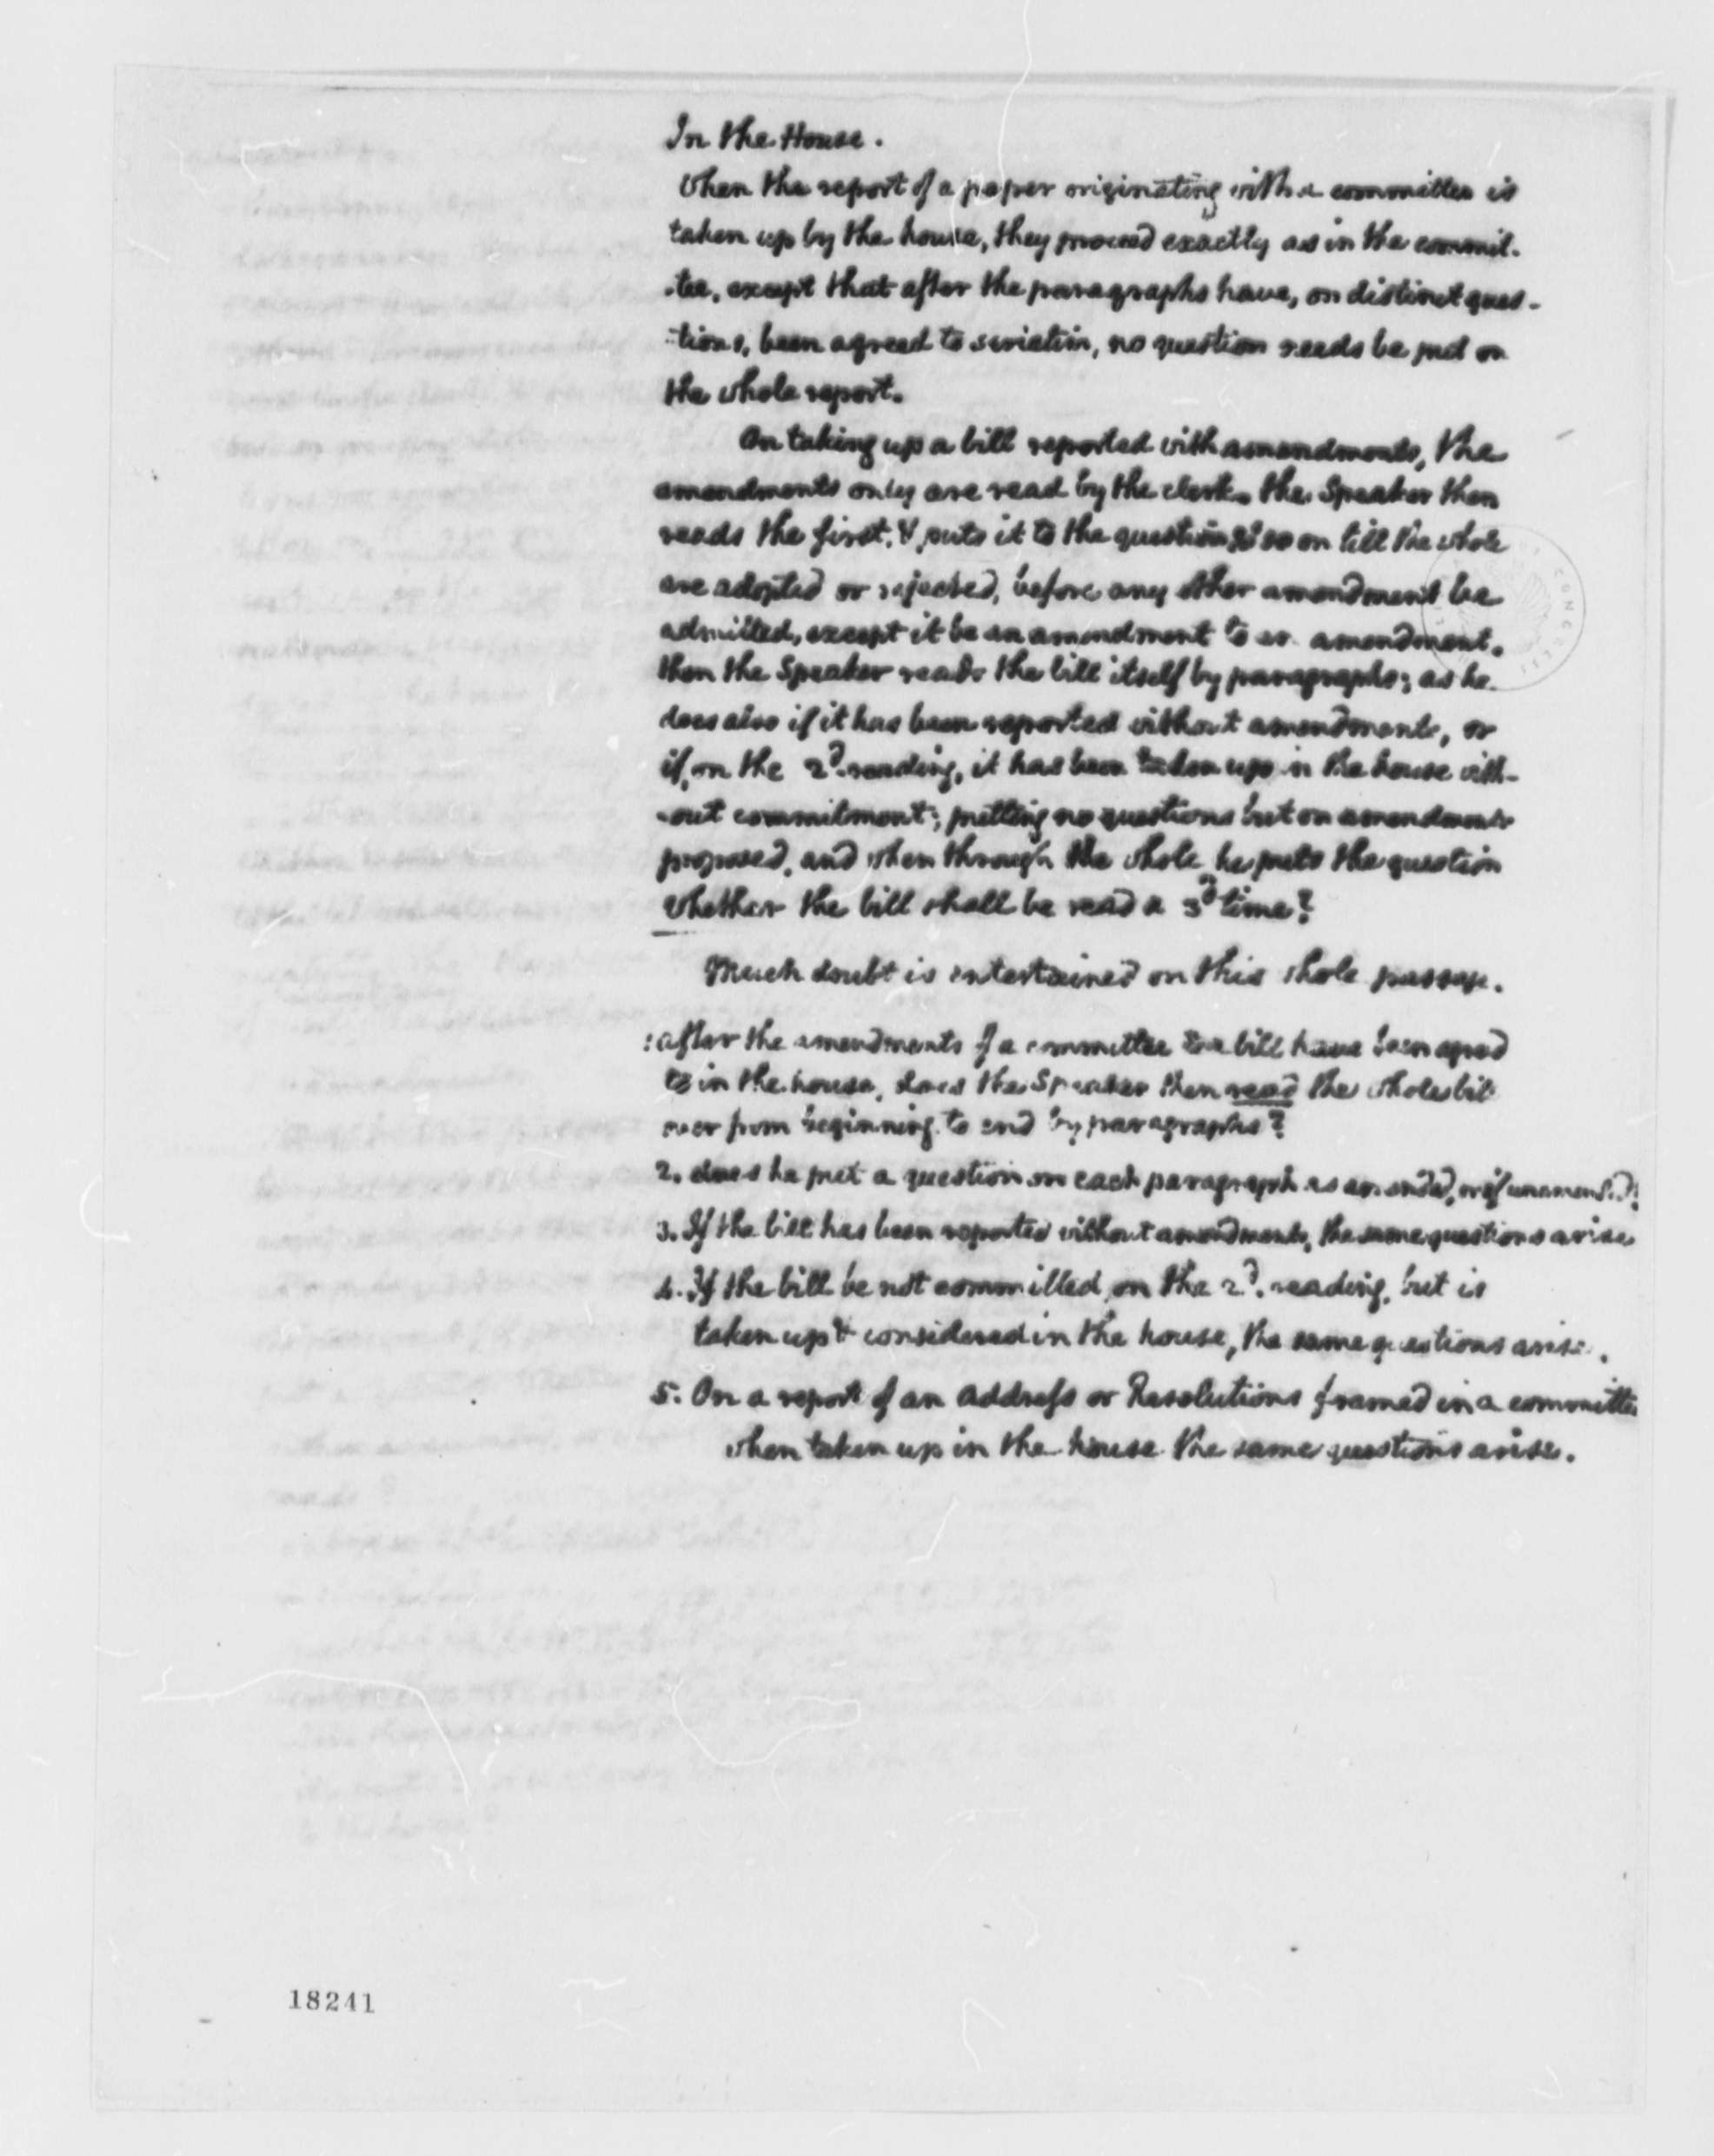 In the House.
When the report of a paper originating with a committee is
taken up by the house, they proceed exactly as in the commit-
-tee, except that after the paragraphs have, on distinct ques-
-tions, been agreed to seriatim, no question needs be put on
the whole report.
On taking up a bill reported with amendments, the
amendments only are read by the clerk. the Speaker then
reads the first, & puts it to the question, & so on till the whole
are adopted or rejected, before any other amendment be
admitted, except it be an amendment to an amendment.
then the Speaker reads the bill itself by paragraphs; as he
does also if it has been reported without amendments, or
if, on the 2d. reading, it has been taken up in the house with-
-out commitment; putting no questions but on amendments
proposed, and when through the whole he puts the question
whether the bill shall be read a 3d time?
Much doubt is entertained on this whole passage.
: after the amendments of a committee to a bill have been agreed
to in the house, does the Speaker then read the whole bill
over from beginning to end by paragraphs?
2. does he put a question on each paragraph as amended, or if unamend.d?
3. If the bill has been reported without amendments, the same questions arise
4. If the bill be not committed, on the 2d. reading, but is
taken up & considered in the house, the same questions arise.
5. On a report of an Address or Resolutions framed in a committee
when taken up in the house the same questions arise.
18241